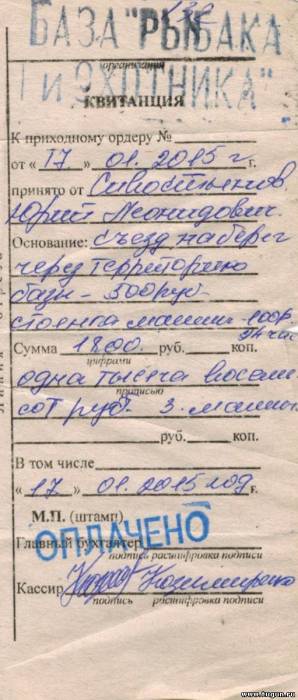 БАЗА "РЫБАКА
организация
И ОХОТНИКА"
КВИТАНЦИЯ
К приходному ордеру №
от « 17 » 01. 2015 г. г.
принято от
Юрий Леонидович.
Основание: съезд на берег
через территорию
базы - 500 руб
стоянка машин
Сумма 1800. руб. коп.
цифрами
одна тысяча восем
прописью
сот руб. 3. машин
руб. коп.
В том числе
« 17 » 01. 2015 год г.
М.П. (штамп)
ОПЛАЧЕНО
Главный бухгалтер
подпись расшифровка подписи
Кассир
подпись расшифровка подписи
Линия отреза
www.tugun.ru